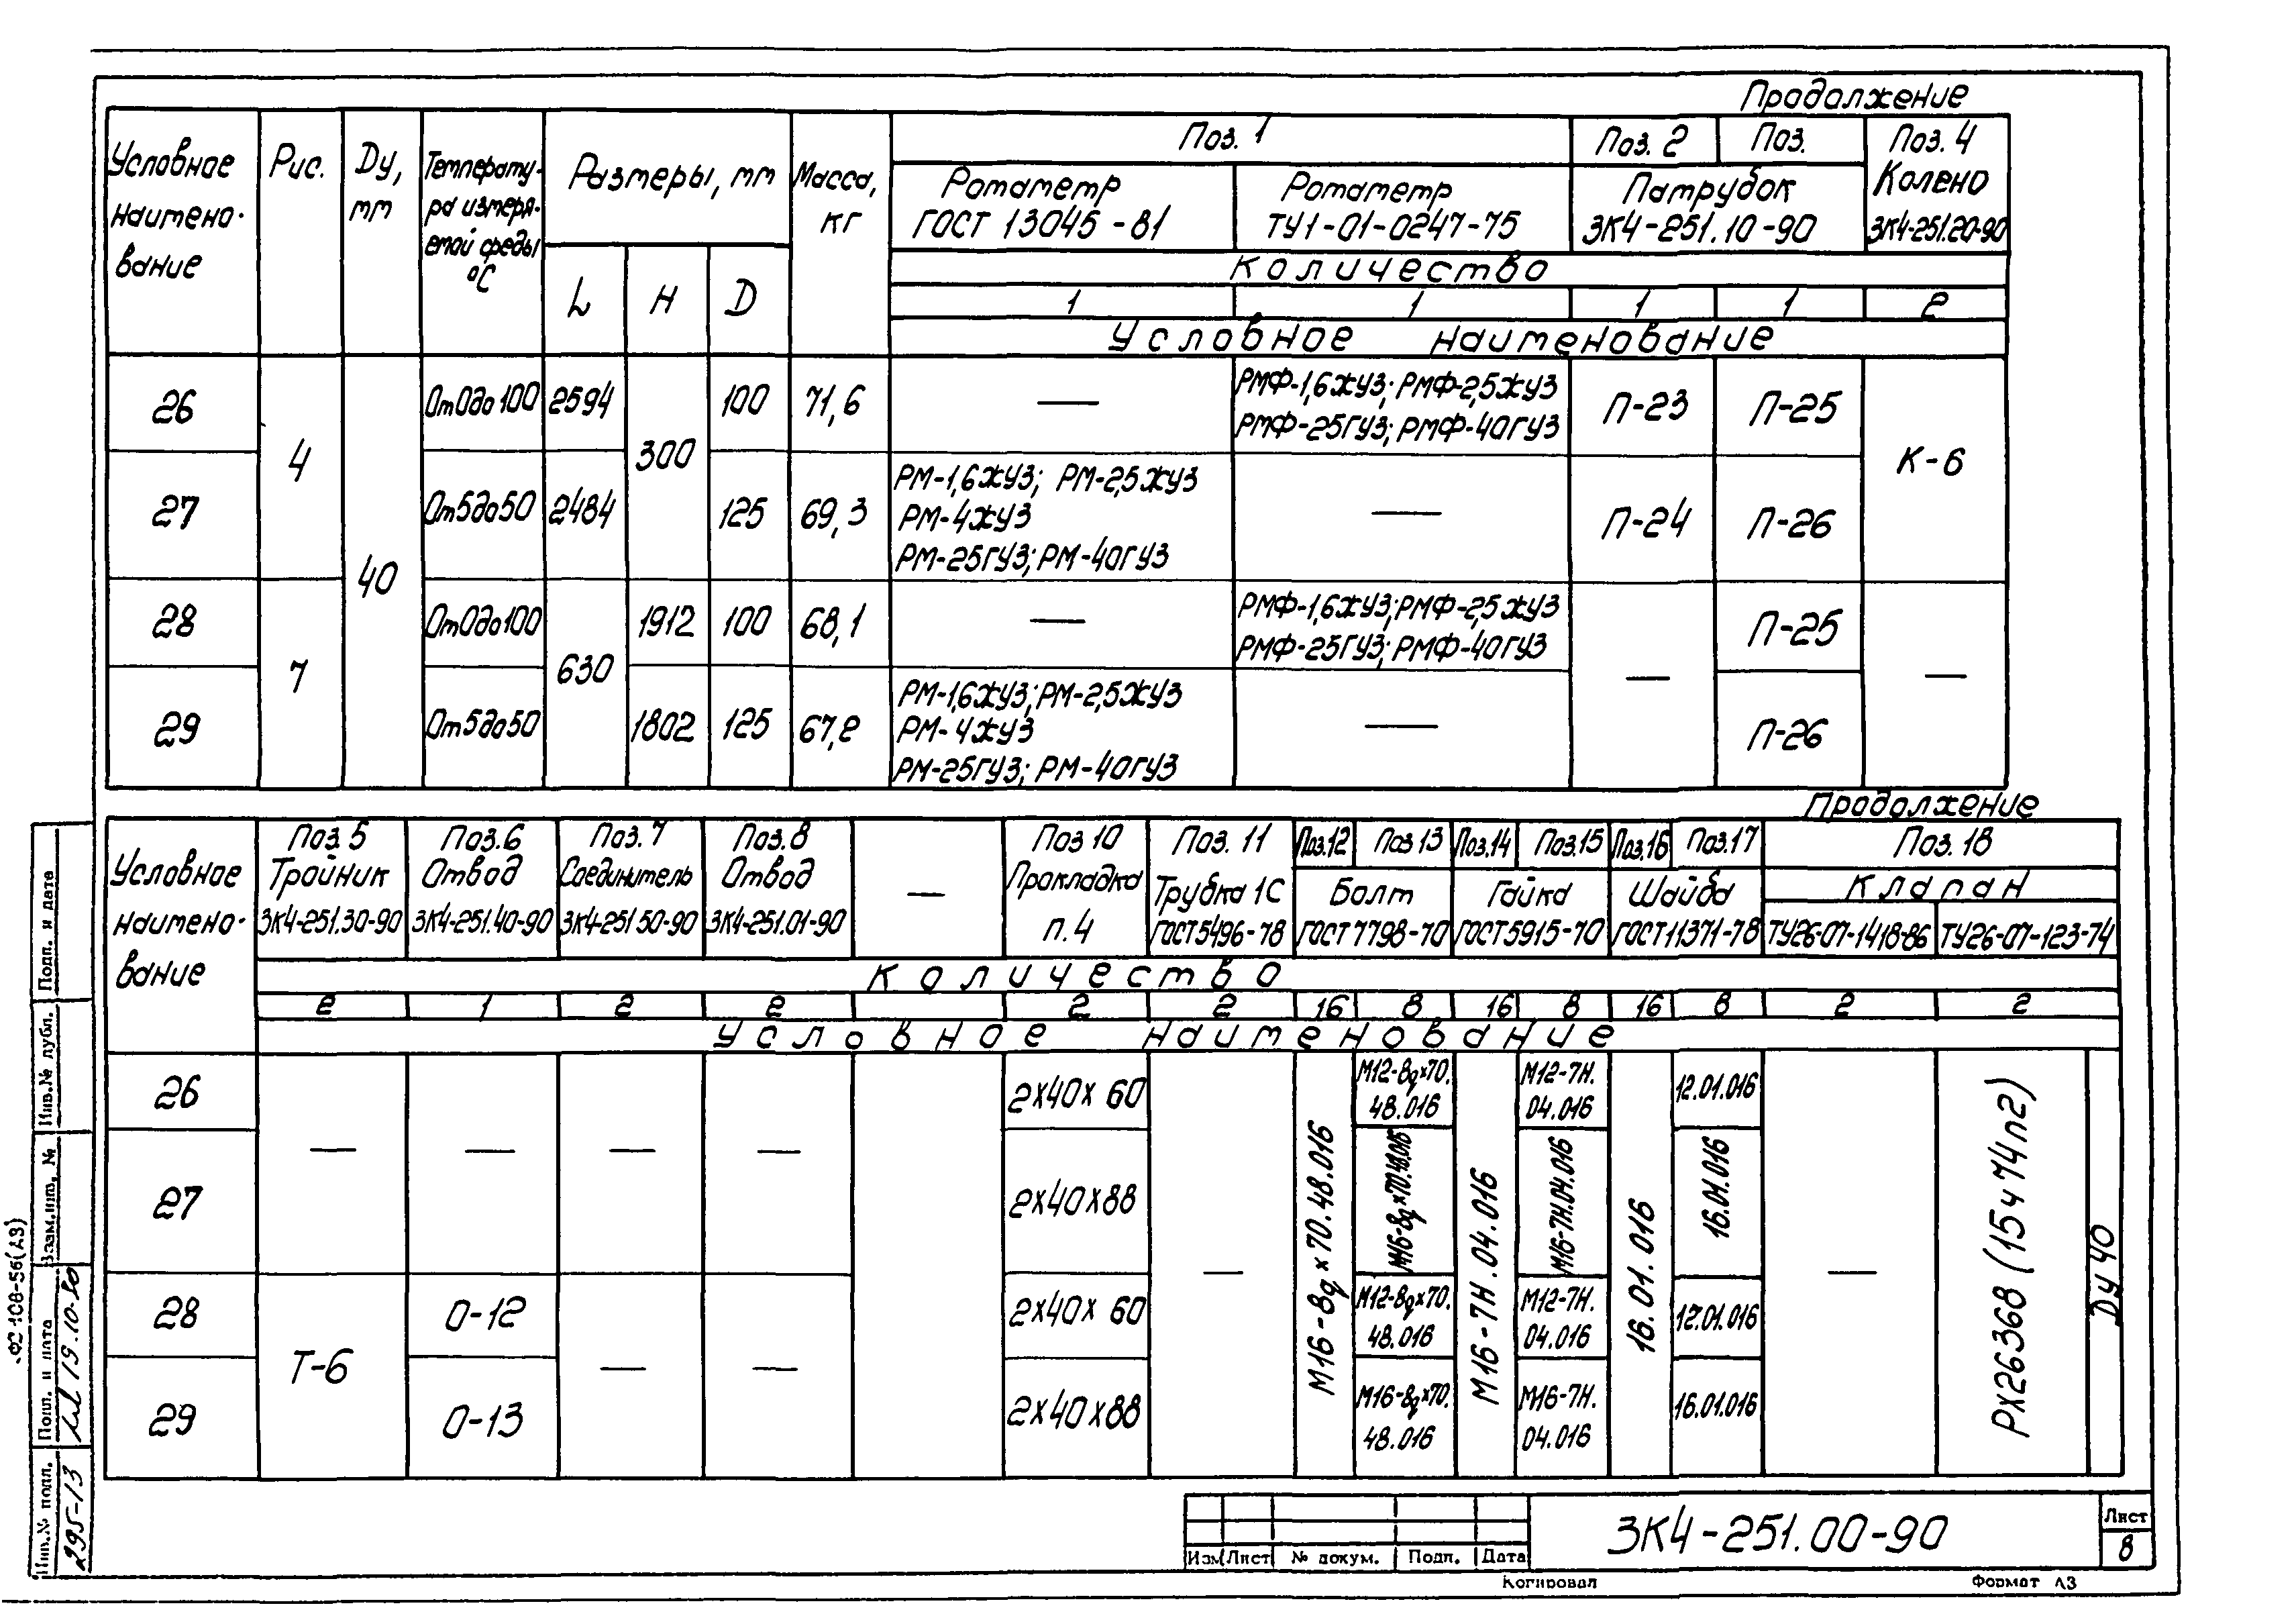 Продолжение
Условное наимено- вание
Рис.
Dу, мм
Температу- ра измеря- емой среды °С
Размеры, мм
L
H
D
Масса, кг
Поз. 1
Поз. 2
Поз.
Поз. 4
Колено
ЗК4-251.20-90
Ротаметр
ГОСТ 13045-81
Ротаметр
ТУ1-01-0247-75
Патрубок
ЗК4-251.10-90
Количество
1 1 1 1 2
Условное наименование
26
4
40
От 0 до 100
2594
300
100
71,6
—
РМФ-1,6ЖУЗ; РМФ-2,5ЖУЗ
РМФ-25ГУЗ; РМФ-40ГУЗ
П-23
П-25
К-6
27
От 5 до 50
2484
125
69,3
РМ-1,6ЖУЗ; РМ-2,5ЖУЗ
РМ-4ЖУЗ
РМ-25ГУЗ; РМ-40ГУЗ
—
П-24
П-26
28
7
От 0 до 100
630
1912
100
68,1
—
РМФ-1,6ЖУЗ; РМФ-2,5ЖУЗ
РМФ-25ГУЗ; РМФ-40ГУЗ
—
П-25
—
29
От 5 до 50
1802
125
67,2
РМ-1,6ЖУЗ; РМ-2,5ЖУЗ
РМ-4ЖУЗ
РМ-25ГУЗ; РМ-40ГУЗ
—
П-26
Продолжение
Условное наимено- вание
Поз. 5
Тройник
ЗК4-251.30-90
Поз. 6
Отвод
ЗК4-251.40-90
Поз. 7
Соединитель
ЗК4-251.50-90
Поз. 8
Отвод
ЗК4-251.01-90
—
Поз 10
Прокладка
п.4
Поз. 11
Трубка 1С
ГОСТ 5496-78
Поз.12 Поз 13
Болт
ГОСТ 7798-70
Поз.14 Поз.15
Гайка
ГОСТ 5915-70
Поз.16 Поз.17
Шайба
ГОСТ 11371-78
Поз. 18
Клапан
ТУ26-07-1418-86
ТУ26-07-123-74
Количество
2 1 2 2 2 2 16 8 16 8 16 8 2 2
Условное наименование
26
— — — —
2х40х60
—
М16-8gх70.48.016
М12-8gх70. 48.016
М16-7Н.04.016
М12-7Н. 04.016
16.01.016
12.01.016
—
РХ26368 (15ч74п2)
Dу 40
27
2х40х88
М16-8gх70.48.016
М16-7Н.04.016
16.01.016
28
Т-6
О-12
— —
2х40х60
М12-8gх70. 48.016
М12-7Н. 04.016
12.01.016
29
О-13
2х40х88
М16-8gх70. 48.016
М16-7Н. 04.016
16.01.016
Изм Лист № докум. Подп. Дата
ЗК4-251.00-90
Лист
8
Копировал
Формат А3
Подп. и дата
Инв.№ дубл.
Взам.инв. №
Подп. и дата
19.10.90
Инв.№ подл.
295-13